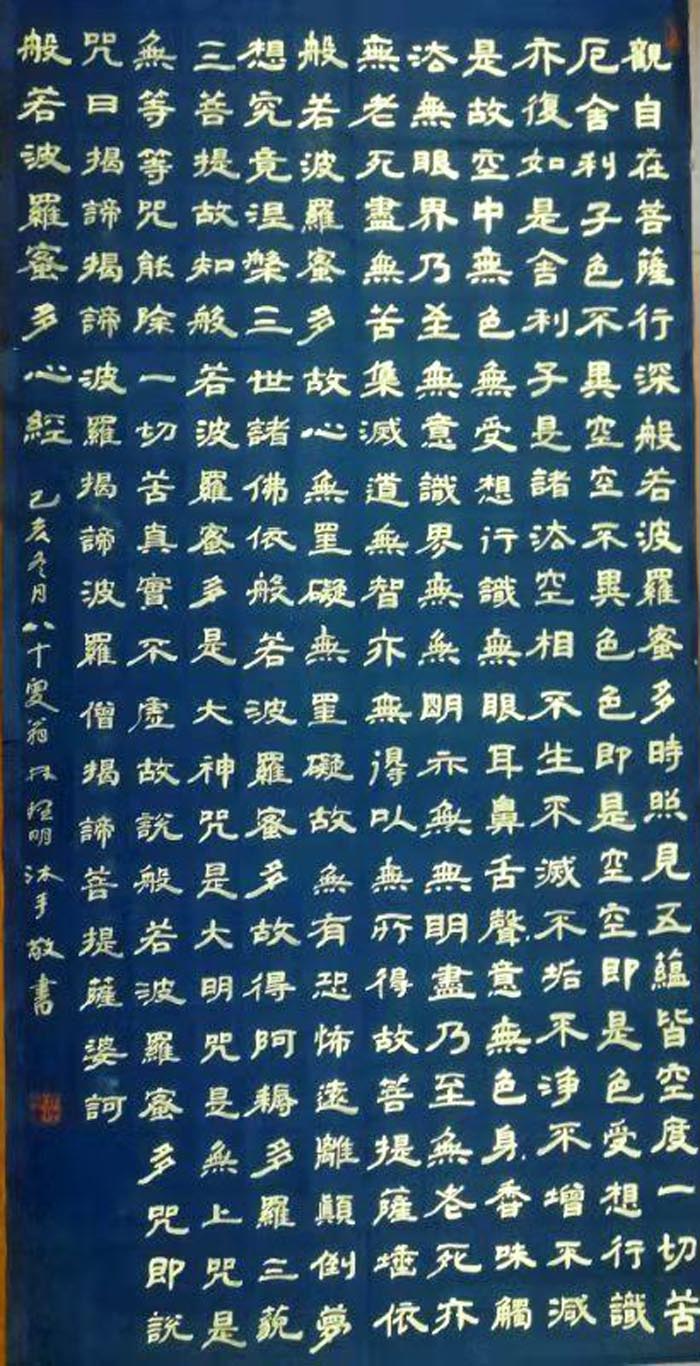 觀自在菩薩行深般若波羅蜜多時照見五蘊皆空度一切苦
厄舍利子色不異空空不異色色即是空空即是色受想行識
亦復如是舍利子是諸法空相不生不滅不垢不淨不增不減
是故空中無色無受想行識無眼耳鼻舌聲意無色身香味觸
法無眼界乃至無意識界無無明亦無無明盡乃至無老死亦
無老死盡無苦集滅道無智亦無得以無所得故菩提薩埵依
般若波羅蜜多故心無罣礙無罣礙故無有恐怖遠離顛倒夢
想究竟涅槃三世諸佛依般若波羅蜜多故得阿耨多羅三藐
三菩提故知般若波羅蜜多是大神咒是大明咒是無上咒是
無等等咒能除一切苦真實不虛故說般若波羅蜜多咒即說
咒曰揭諦揭諦波羅揭諦波羅僧揭諦菩提薩婆訶
般若波羅蜜多心經 己亥冬月八十叟翁明沐手敬書